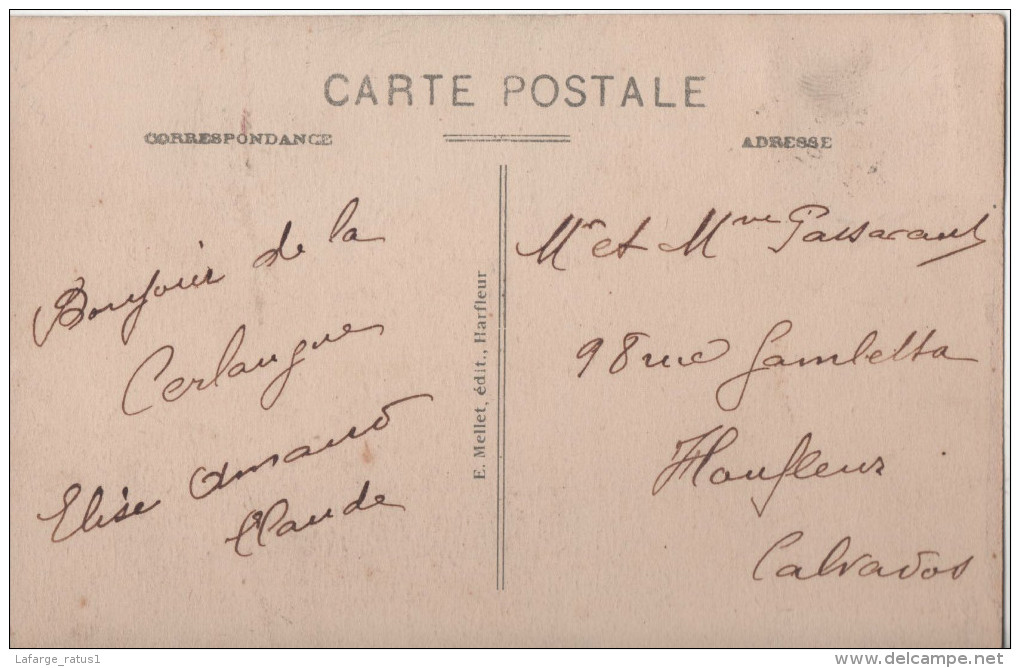 CARTE POSTALE
CORRESPONDANCE
ADRESSE
Bonjour de la
Cerlangue
Elise Amand
Claude
E. Mellet, édit., Harfleur
Mr et Mme Passavant
98 rue Gambetta
Honfleur
Calvados
Lafarge_ratus1
www.delcampe.net